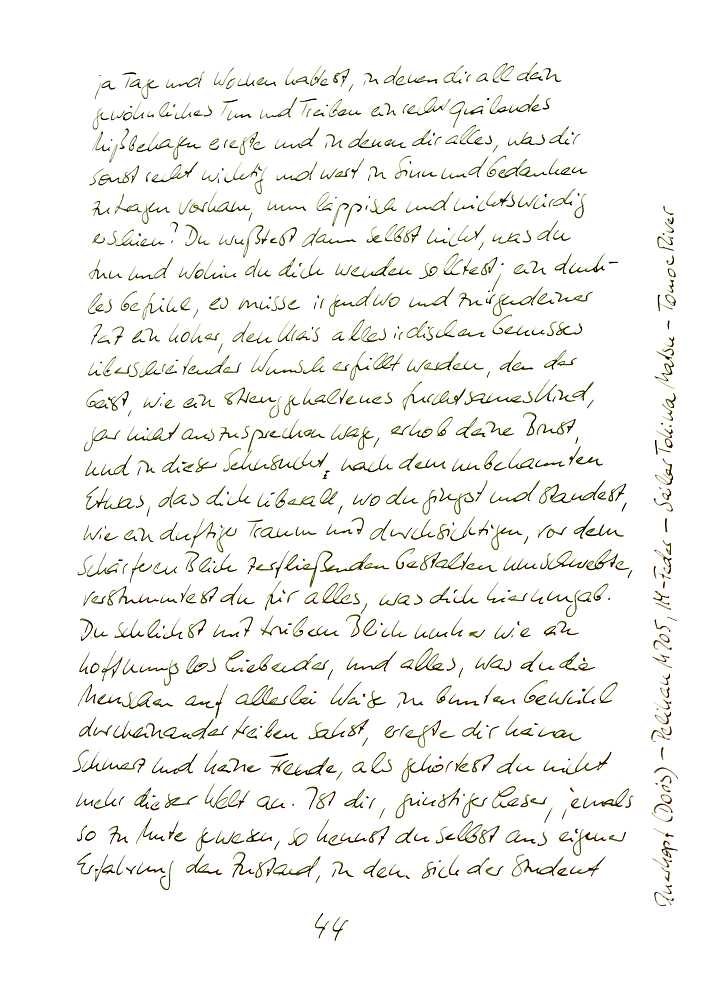 ja Tage und Wochen hattest, in denen dir all dein
gewöhnliches Tun und Treiben ein recht quälendes
Mißbehagen eregte und in denen dir alles, was dir
sonst recht wichtig und wert in Sinn und Gedanken
zu tragen vorkam, nun läppisch und nichtswürdig
erschien? Du wußtest dann selbst nicht, was du
tun und wohin du dich wenden solltest; ein dunk-
les Gefühl, es müsse irgendwo und zu irgendeiner
Zeit ein hoher, den Kreis alles irdischen Genusses
überschreitender Wunsch erfüllt werden, den der
Geist, wie ein strenggehaltenes furchtsames Kind,
gar nicht auszusprechen wage, erhob deine Brust,
und in dieser Sehnsucht, nach dem unbekannten
Etwas, das dich überall, wo du gingst und standest,
wie ein duftiger Traum mit durchsichtigen, vor dem
schärferen Blick zerfließenden Gestalten umschwebte,
verstummtest du für alles, was dich hier umgab.
Du schlichst mit trübem Blick umher wie ein
hoffnungslos Liebender, und alles, was du die
Menschen auf allerlei Weise im bunten Gewühl
durcheinander treiben sahst, eregte dir keinen
Schmerz und keine Freude, als gehörtest du nicht
mehr dieser Welt an. Ist dir, günstiger Leser, jemals
so zu Mute gewesen, so kennst du selbst aus eigener
Erfahrung den Zustand, in dem sich der Student
44
Querkopf (Doris) – Pelikan M205, IM-Feder – Sailor Tokiwa Matsu – Tomoe River